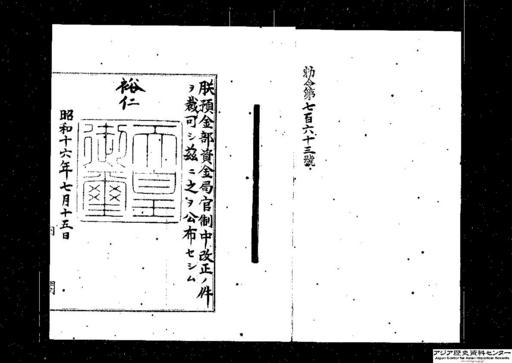 勅令第七百六十三號
朕預金部資金局官制中改正ノ件
ヲ裁可シ茲ニ之ヲ公布セシム
裕仁
天皇
御璽
昭和十六年七月十五日
内閣
アジア歴史資料センター
Japan Center for Asian Historical Records